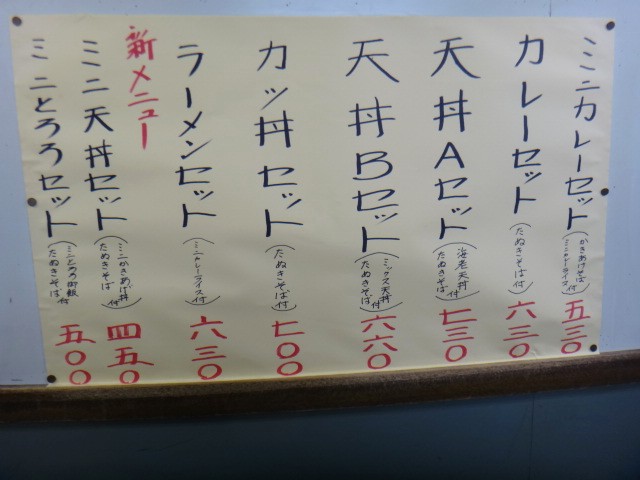 ミニカレーセット（かきあげそば ミニカレーライス付）五三〇
カレーセット（たぬきそば付）六三〇
天丼Aセット（海老天丼 たぬきそば付）七三〇
天丼Bセット（ミックス天丼 たぬきそば付）六六〇
カツ丼セット（たぬきそば付）七〇〇
ラーメンセット（ミニカレーライス付）六三〇
新メニュー
ミニ天丼セット（ミニかきあげ丼 たぬきそば付）四五〇
ミニとろろセット（ミニとろろ御飯 たぬきそば付）五〇〇